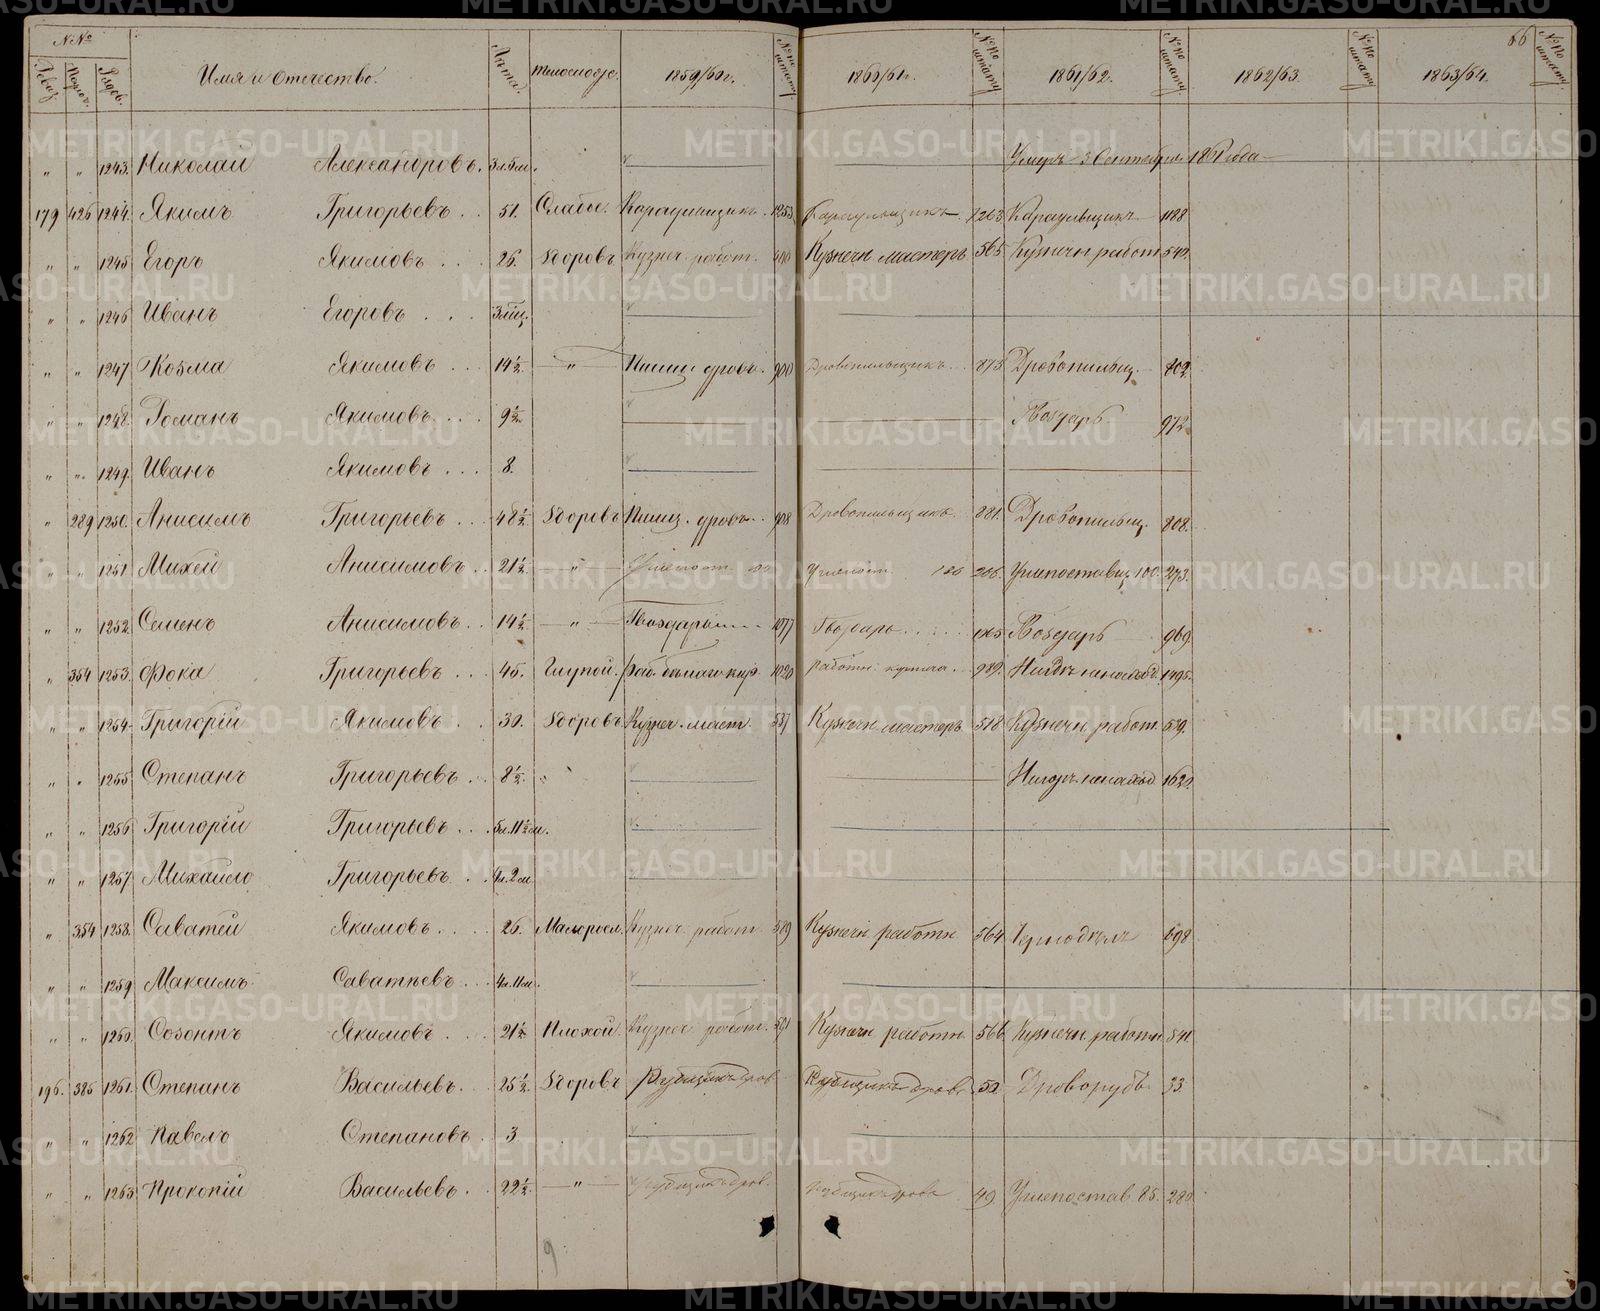 №№
Ревиз. Подвор. Рядов. Имя и Отечество. Лѣта. Тѣлосложе. 1859/60 г. №№ по штату. 1860/61 г. №№ по штату 1861/62. №№ по штату 1862/63. №№ по штату 1863/64. №№ по штату. 66
" " 1243. Николай Александровъ. 3 л. 5 м. Умеръ 3 Сентября 1861 года
179 426 1244. Якимъ Григорьевъ . . 51. Слабое. Караульщикъ. 1253. Караульщикъ 1263 Караульщикъ 1188
" " 1245 Егоръ Якимовъ . . . 26. Здоровъ Кузнеч. работ. Кузнечн мастеръ 565 Кузнечн работ 540.
" " 1246 Иванъ Егоровъ . . .
" " 1247 Козма Якимовъ . . . 14½ " дровъ. 900 Дровопильщикъ 873 Дровопильщ. 802.
" " 1248. Романъ Якимовъ. . . . 9½ Гвоздарь 972.
" " 1249. Иванъ Якимовъ . . . 8.
" 289 1250. Анисимъ Григорьевъ . . . 48½ Здоровъ дровъ . . 908 Дровопильщикъ. 881. Дровопильщ. 808.
" " 1251 Михей Анисимовъ . . 21½ " Углепост. Углепост. 266. Углепоставщ 100. 273.
" " 1252. Семенъ Анисимовъ . . 14½ " Гвоздарь 1077 Гвоздарь . . . . . Гвоздарь 969.
" 354 1253. Фока Григорьевъ . . . 45. Глухой. 1020 Работн. кирпича . 989. 1495.
" " 1254. Григорій Якимовъ . . 30. Здоровъ Кузнеч. маст. 537 Кузнечн мастеръ. 518 Кузнечн. работ. 539.
" " 1255. Степанъ Григорьевъ . . . 8½ 1629
" " 1256 Григорій Григорьевъ . . . 5 л. 11½ м.
" " 1257 Михайло Григорьевъ . . 4 л. 2 м.
" 354 1258. Саватей Якимовъ . . . . 26. Малоросл. Кузнеч. работ. 539 Кузнечн работн. 564 Чернодѣлъ 698
" " 1259 Максимъ Саватѣевъ . . . 4 л. 11 м.
" " 1260. Созонтъ Якимовъ . . . 21½ Плохой. Кузнеч работ. 591 Кузнечн работн. 566 Кузнечн. работн. 541.
196. 385 1261. Степанъ Васильевъ. . . 25½ Здоровъ Рубщикъ дров. Рубщикъ дровъ 52. Дроворубъ. 33.
" " 1262 Павелъ Степановъ . 3.
" " 1263 Прокопій Васильевъ . . 22½ " Рубщикъ дров. Рубщикъ дровъ 49 Углепостав 85. 280.
9
METRIKI.GASO-URAL.RU